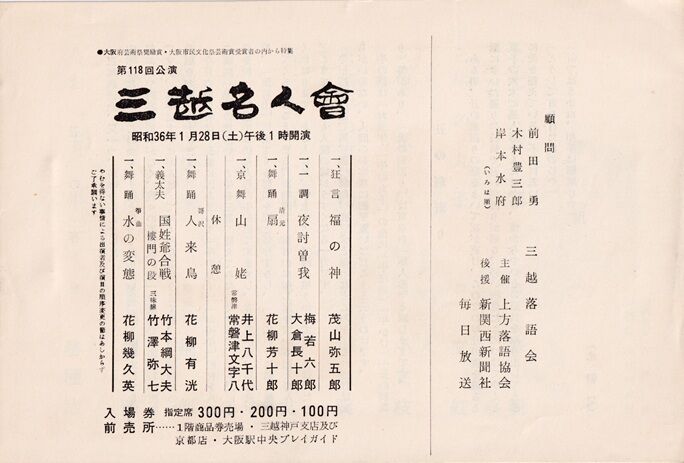 顧問
前田勇
木村豊三郎
岸本水府
(いろは順)
三越落語会
主催 上方落語協会
後援 新関西新聞社
毎日放送
●大阪府芸術祭奨励賞・大阪市民文化祭芸術賞受賞者の内から特集
第118回公演
三越名人會
昭和36年1月28日(土)午後1時開演
一、狂言 福の神 茂山弥五郎
一、一調 夜討曽我 梅若六郎
大倉長十郎
一、舞踊 清元 扇 花柳芳十郎
一、京舞 山姥 井上八千代
常磐津 常磐津文字八
休憩
一、舞踊 哥沢 人来鳥 花柳有洸
一、義太夫 国姓爺合戦 竹本綱大夫
楼門の段 三味線 竹澤弥七
一、舞踊 箏曲 水の変態 花柳幾久英
やむを得ない事情による出演者及び演目の順序変更の節はあしからず
ご了承願います
入場券 指定席 300円・200円・100円
前売所……1階商品券売場・三越神戸支店及び
京都店・大阪駅中央プレイガイド